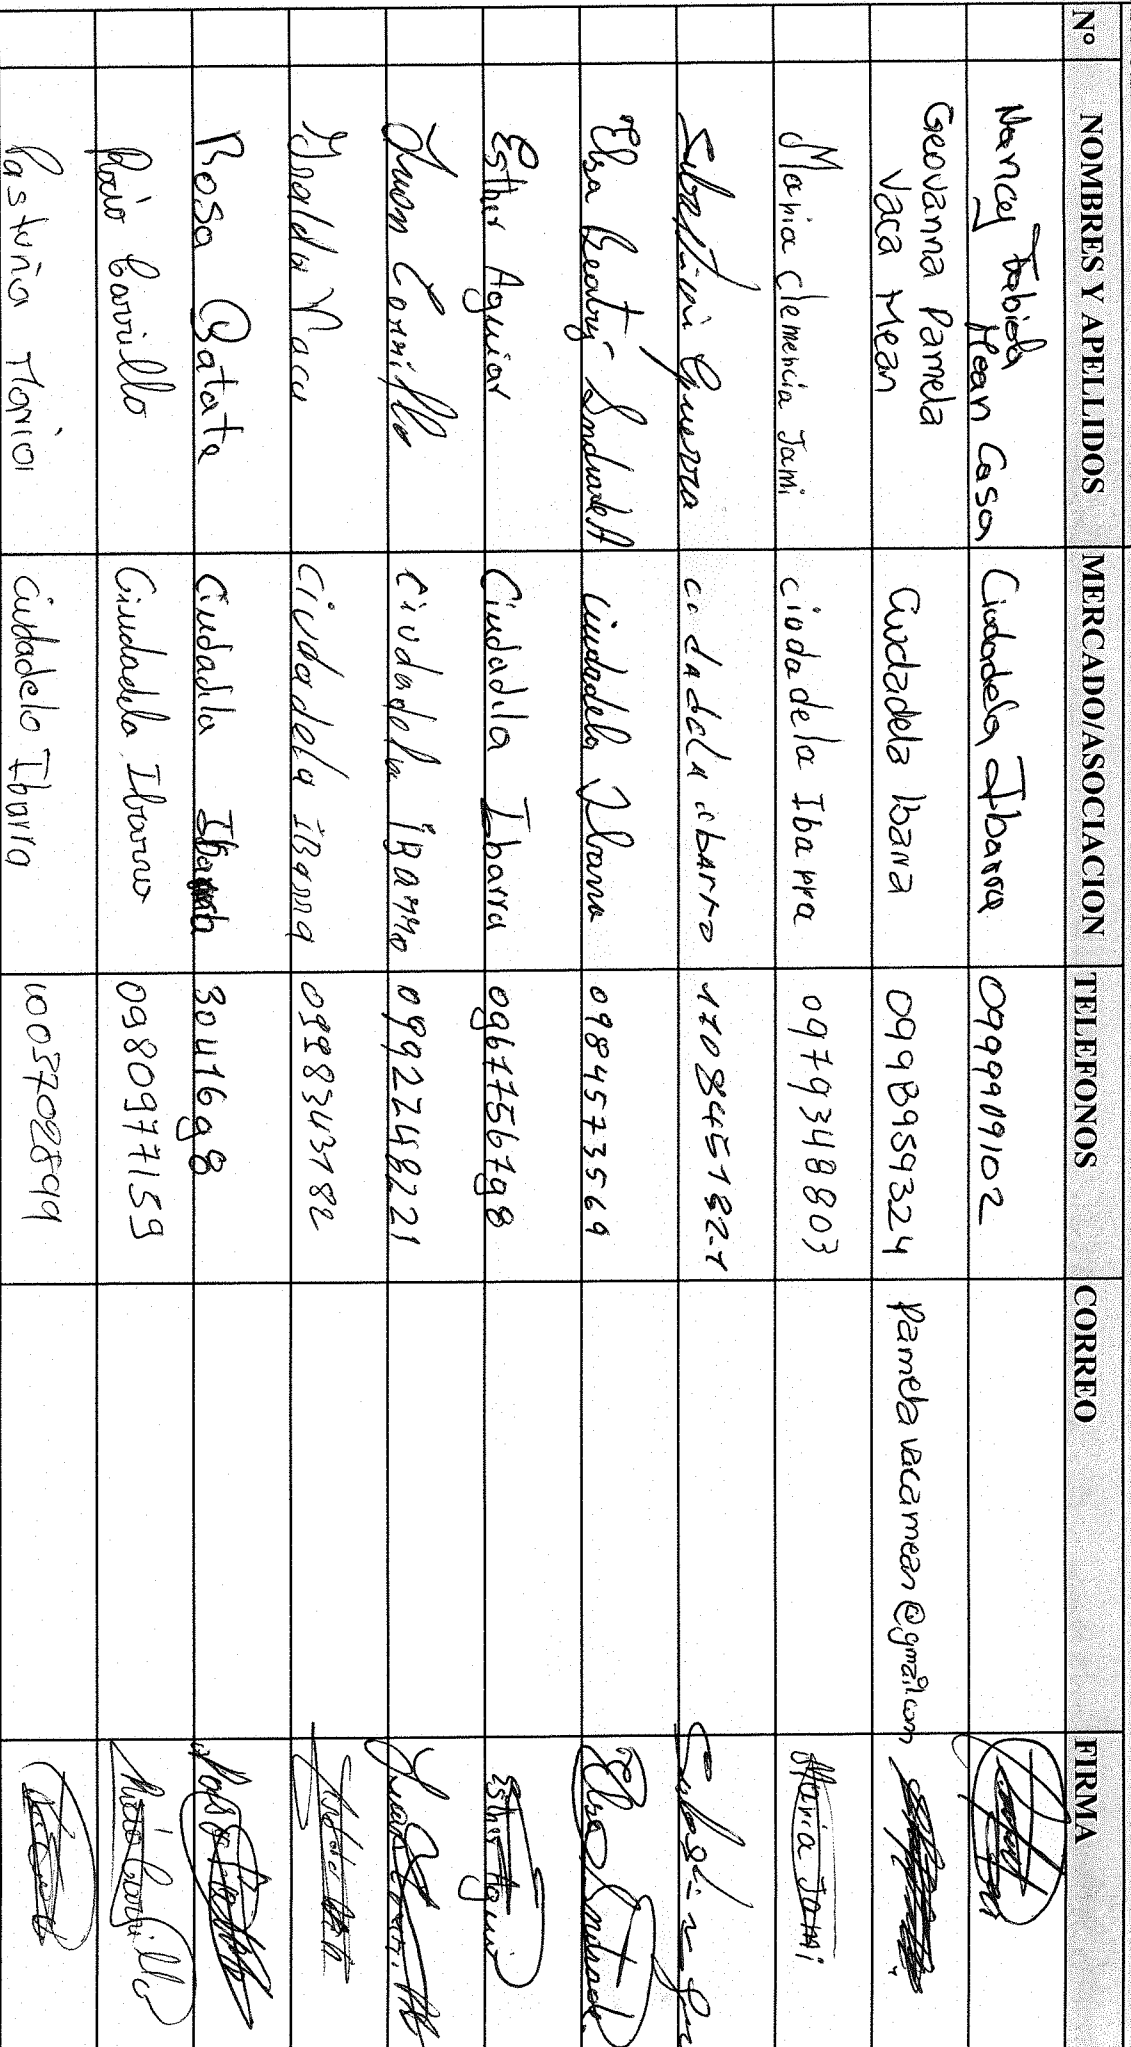 N° NOMBRES Y APELLIDOS MERCADO/ASOCIACION TELEFONOS CORREO FIRMA
Nancy Fabiola
Mean Casa Ciudadela Ibarra 0999909102
Geovanna Pamela
Vaca Mean Ciudadela Ibarra 0998959324 pamelavacamean@gmail.com
Maria Clemencia Jami ciodadela Ibarra 0979348803 Maria Jami
Guerra 170845182-1
Elsa Beatriz Andrade A Ciudadela Ibarra 0984573569 Elsa Andrade
Esther Aguiar Ciudadila Ibarra 0967756798 Esther Aguiar
Juan Carrillo Ciudadela iBarra 0992248221
Isolda Vaca Ciudadela IBarra 0998343782
Rosa Batata Ciudadila 3041698
Rocio Carrillo Ciudadela Ibarra 0980977159 Rocio Carrillo
Pastuña Maria Ciudadela Ibarra